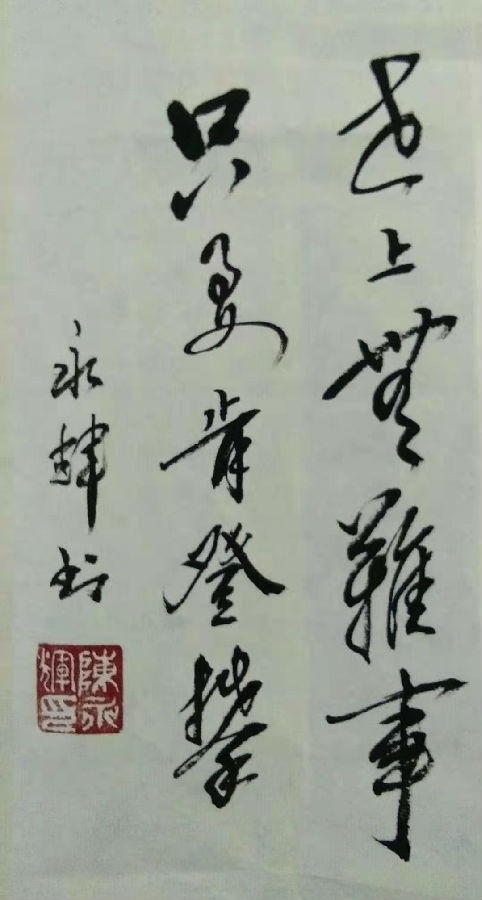 世上無難事
只要肯登攀
永輝书
陳永輝印